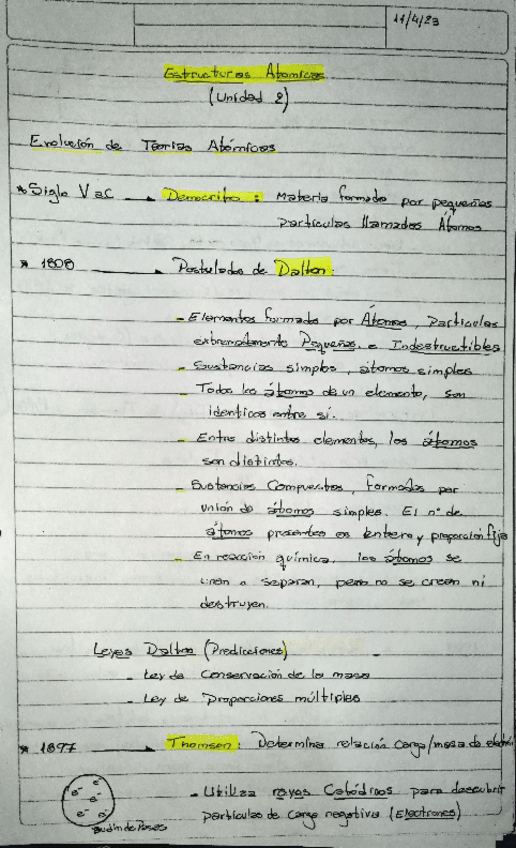 11/4/23
Estructuras Atomicas
(Unidad 2)
Evolución de Teorias Atómicas
* Siglo V aC → Democrito : Materia formada por pequeñas
particulas llamadas Átomos
* 1808 → Postulados de Dalton:
- Elementos formado por Átomos, particulas
extremadamente Pequeñas e Indestructibles
- Sustancias simples, átomos simples
- Todos los átomos de un elemento, son
identicos entre sí.
- Entre distintos elementos, los átomos
son distintos.
- Sustancias Compuestas, formadas por
unión de átomos simples. El n° de
átomos presentes es entero y proporción fija
- En reacción química, los átomos se
unen o separan, pero no se crean ni
destruyen.
Leyes Dalton (Predicciones)
- Ley de Conservación de la masa
- Ley de Proporciones múltiples
* 1897 → Thomson: Determina relación carga/masa de electrón
- Utiliza rayos Catódicos para descubrir
particulas de carga negativa (Electrones)
e⁻ e⁻ e⁻ e⁻ e⁻
budín de Pasas